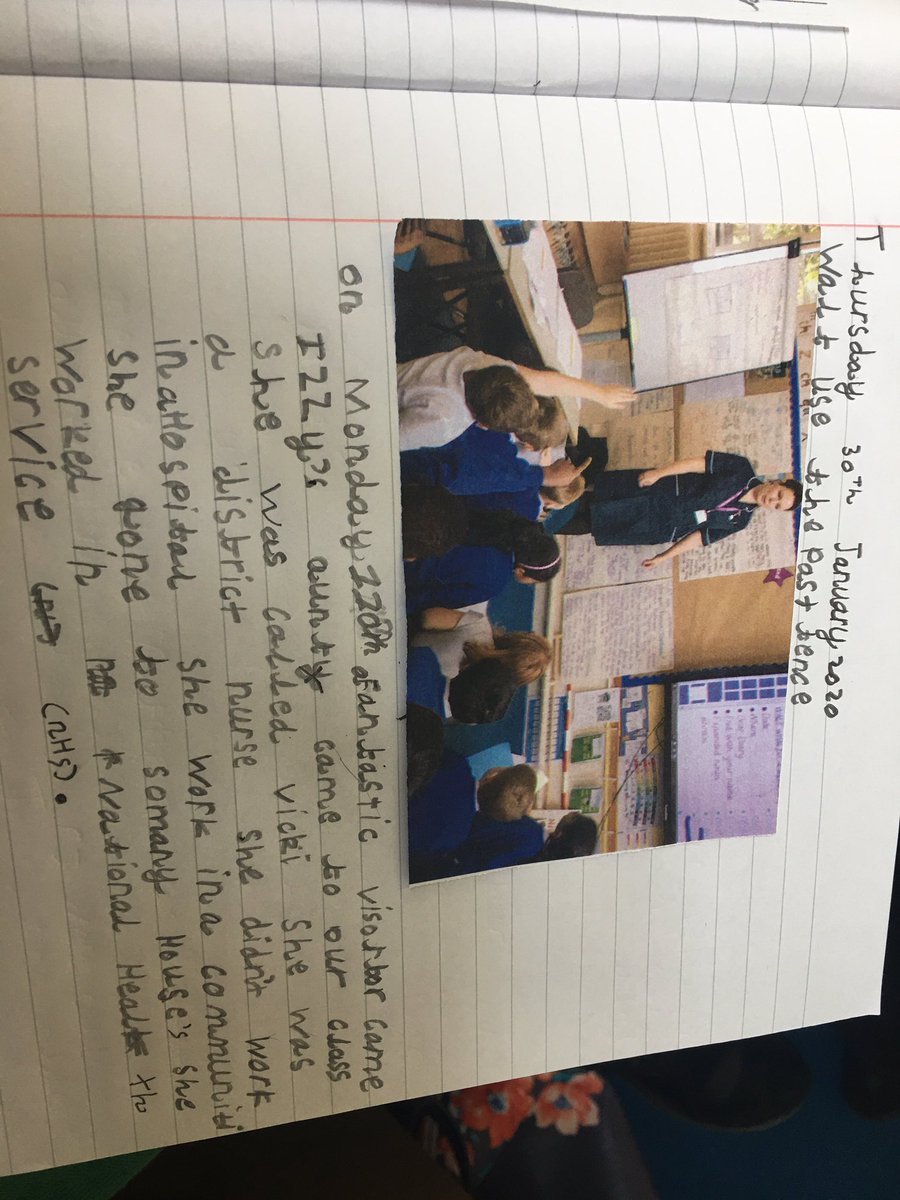 Thursday 30th January 2020
Walt use the past tence
on Monday 220th a fantastic visortor came
IZZy's aunty came to our class
she was called vicki she was
a district nurse she didn't work
in a Hospital she work in a communiti
she gone to somany House's she
worked in National Health
service (nHs).